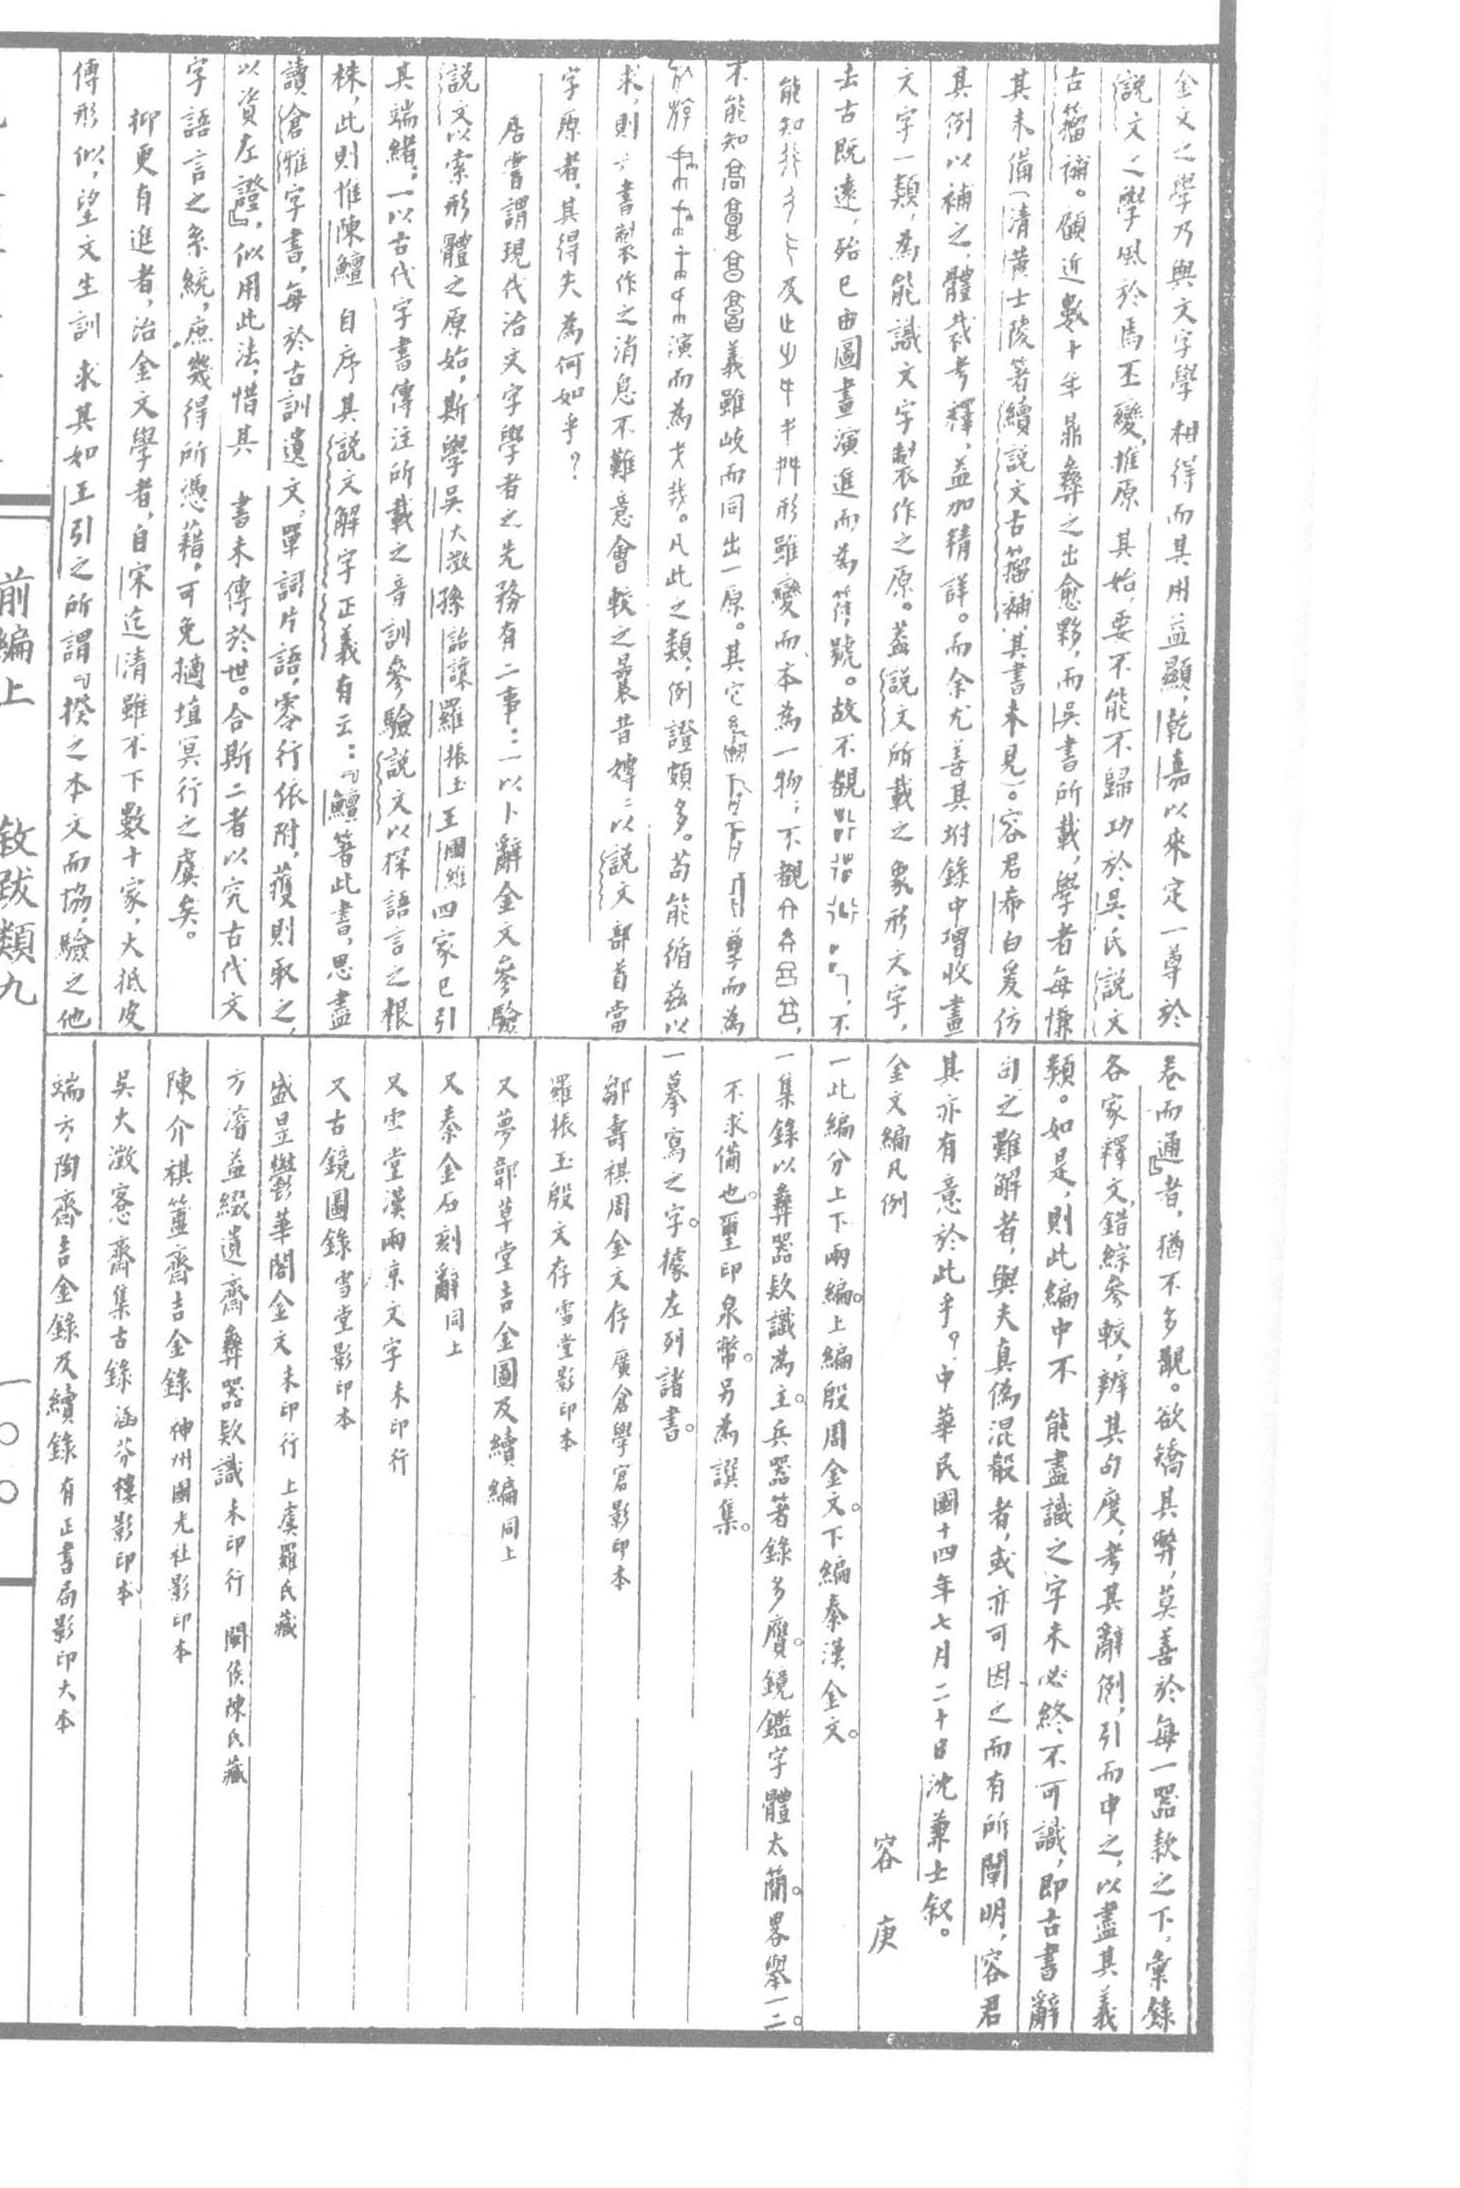 金文之學乃與文字學相得而其用益顯，乾嘉以來定一尊於
說文之學風於焉丕變，推原其始，要不能不歸功於吳氏說文
古籀補。顧近數十年鼎彝之出愈夥，而吳書所載，學者每慊
其未備（清黃士陵箸續說文古籀補，其書未見）。容君希白爰仿
其例以補之，體裁考釋，益加精詳。而余尤善其坿錄中增收畫
文字一類，為能識文字製作之原。蓋說文所載之象形文字，
去古既遠，殆已由圖畫演進而為符號。故不觀，不
能知及止屮牛形雖變而本為一物；不觀，
不能知義雖岐而同出一原。其它孳而為
演而為。凡此之類，例證頗多。苟能循茲以
求，則六書製作之消息不難意會較之曩昔以說文部首當
字原者，其得失為何如乎？
居嘗謂現代治文字學者之先務有二事：一以卜辭金文參驗
說文以索形體之原始，斯學吳大澂孫詒讓羅振玉王國維四家已引
其端緒；一以古代字書傳注所載之音訓參驗說文以探語言之根
株，此則惟陳鱣自序其說文解字正義有云：『鱣箸此書，思盡
讀倉雅字書，每於古訓遺文，單詞片語，零行依附，獲則取之，
以資左證』，似用此法，惜其書未傳於世。合斯二者以究古代文
字語言之系統，庶幾得所憑藉，可免擿埴冥行之虞矣。
抑更有進者，治金文學者，自宋迄清雖不下數十家，大抵皮
傅形似，望文生訓求其如王引之所謂『揆之本文而協，驗之他
卷而通』者，猶不多覯。欲矯其弊，莫善於每一器款之下，彙錄
各家釋文，錯綜參較，辨其句度，考其辭例，引而申之，以盡其義
類。如是，則此編中不能盡識之字未必終不可識，即古書辭
句之難解者，與夫真偽混殽者，或亦可因之而有所闡明，容君
其亦有意於此乎？中華民國十四年七月二十日沈兼士叙。
金文編凡例 容庚
一此編分上下兩編。上編殷周金文。下編秦漢金文。
一集錄以彝器欵識為主。兵器箸錄多贋。鏡鑑字體太簡。畧舉一二。
不求備也。璽印泉幣。另為譔集。
一摹寫之字。據左列諸書。
鄒壽祺周金文存 廣倉學宭影印本
羅振玉殷文存 雪堂影印本
又夢郼草堂吉金圖及續編 同上
又秦金石刻辭 同上
又雪堂漢兩京文字 未印行
又古鏡圖錄 雪堂影印本
盛昱鬱華閣金文 未印行 上虞羅氏藏
方濬益綴遺齋彝器欵識 未印行 閩侯陳氏藏
陳介祺簠齋吉金錄 神州國光社影印本
吳大澂愙齋集古錄 涵芬樓影印本
端方陶齋吉金錄及續錄 有正書局影印大本
前編上 敘跋類九 一〇〇